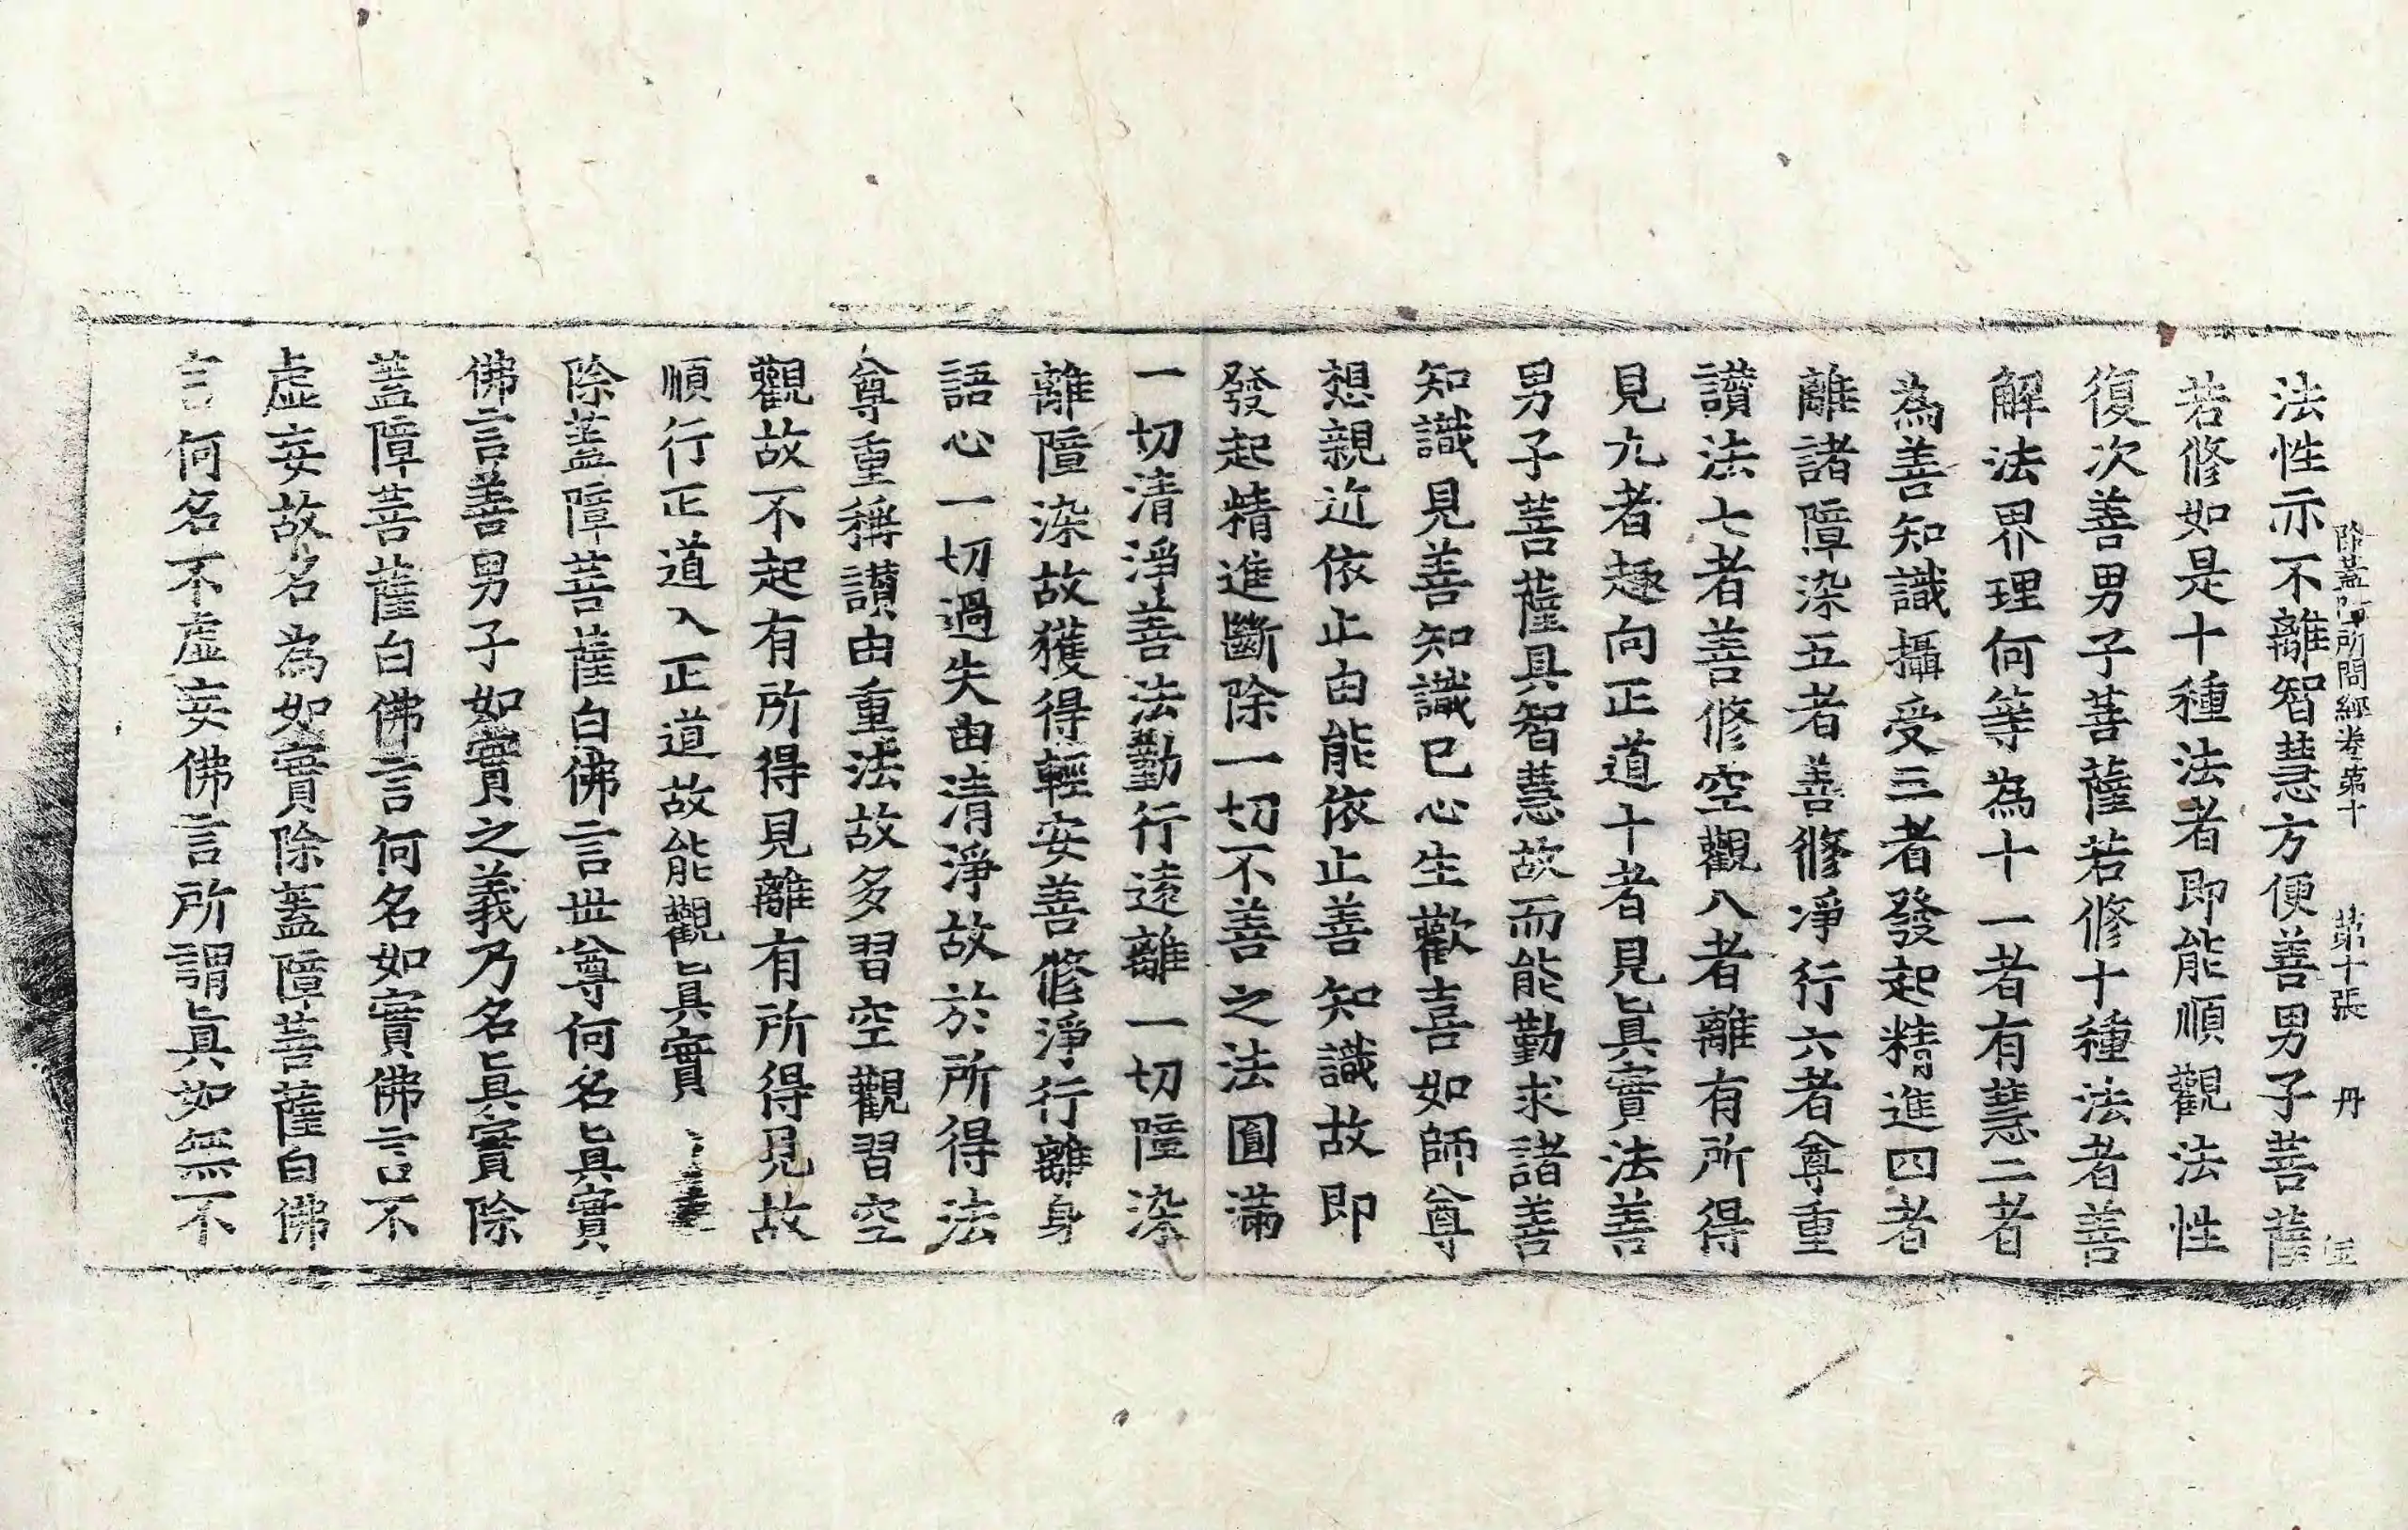 除蓋障所問經卷第十 第十張 丹
法性示不離智慧方便善男子菩薩
若修如是十種法者即能順觀法性
復次善男子菩薩若修十種法者善
解法界理何等為十一者有慧二者
為善知識攝受三者發起精進四者
離諸障染五者善修淨行六者尊重
讃法七者善修空觀八者離有所得
見九者趣向正道十者見眞實法善
男子菩薩具智慧故而能勤求諸善
知識見善知識已心生歡喜如師尊
想親近依止由能依止善知識故即
發起精進斷除一切不善之法圓滿
一切清淨善法勤行遠離一切障染
離障染故獲得輕安善修淨行離身
語心一切過失由清淨故於所得法
尊重稱讃由重法故多習空觀習空
觀故不起有所得見離有所得見故
順行正道入正道故能觀眞實
除蓋障菩薩白佛言世尊何名眞實
佛言善男子如實之義乃名眞實除
蓋障菩薩白佛言何名如實佛言不
虛妄故名為如實除蓋障菩薩白佛
言何名不虛妄佛言所謂眞如無不